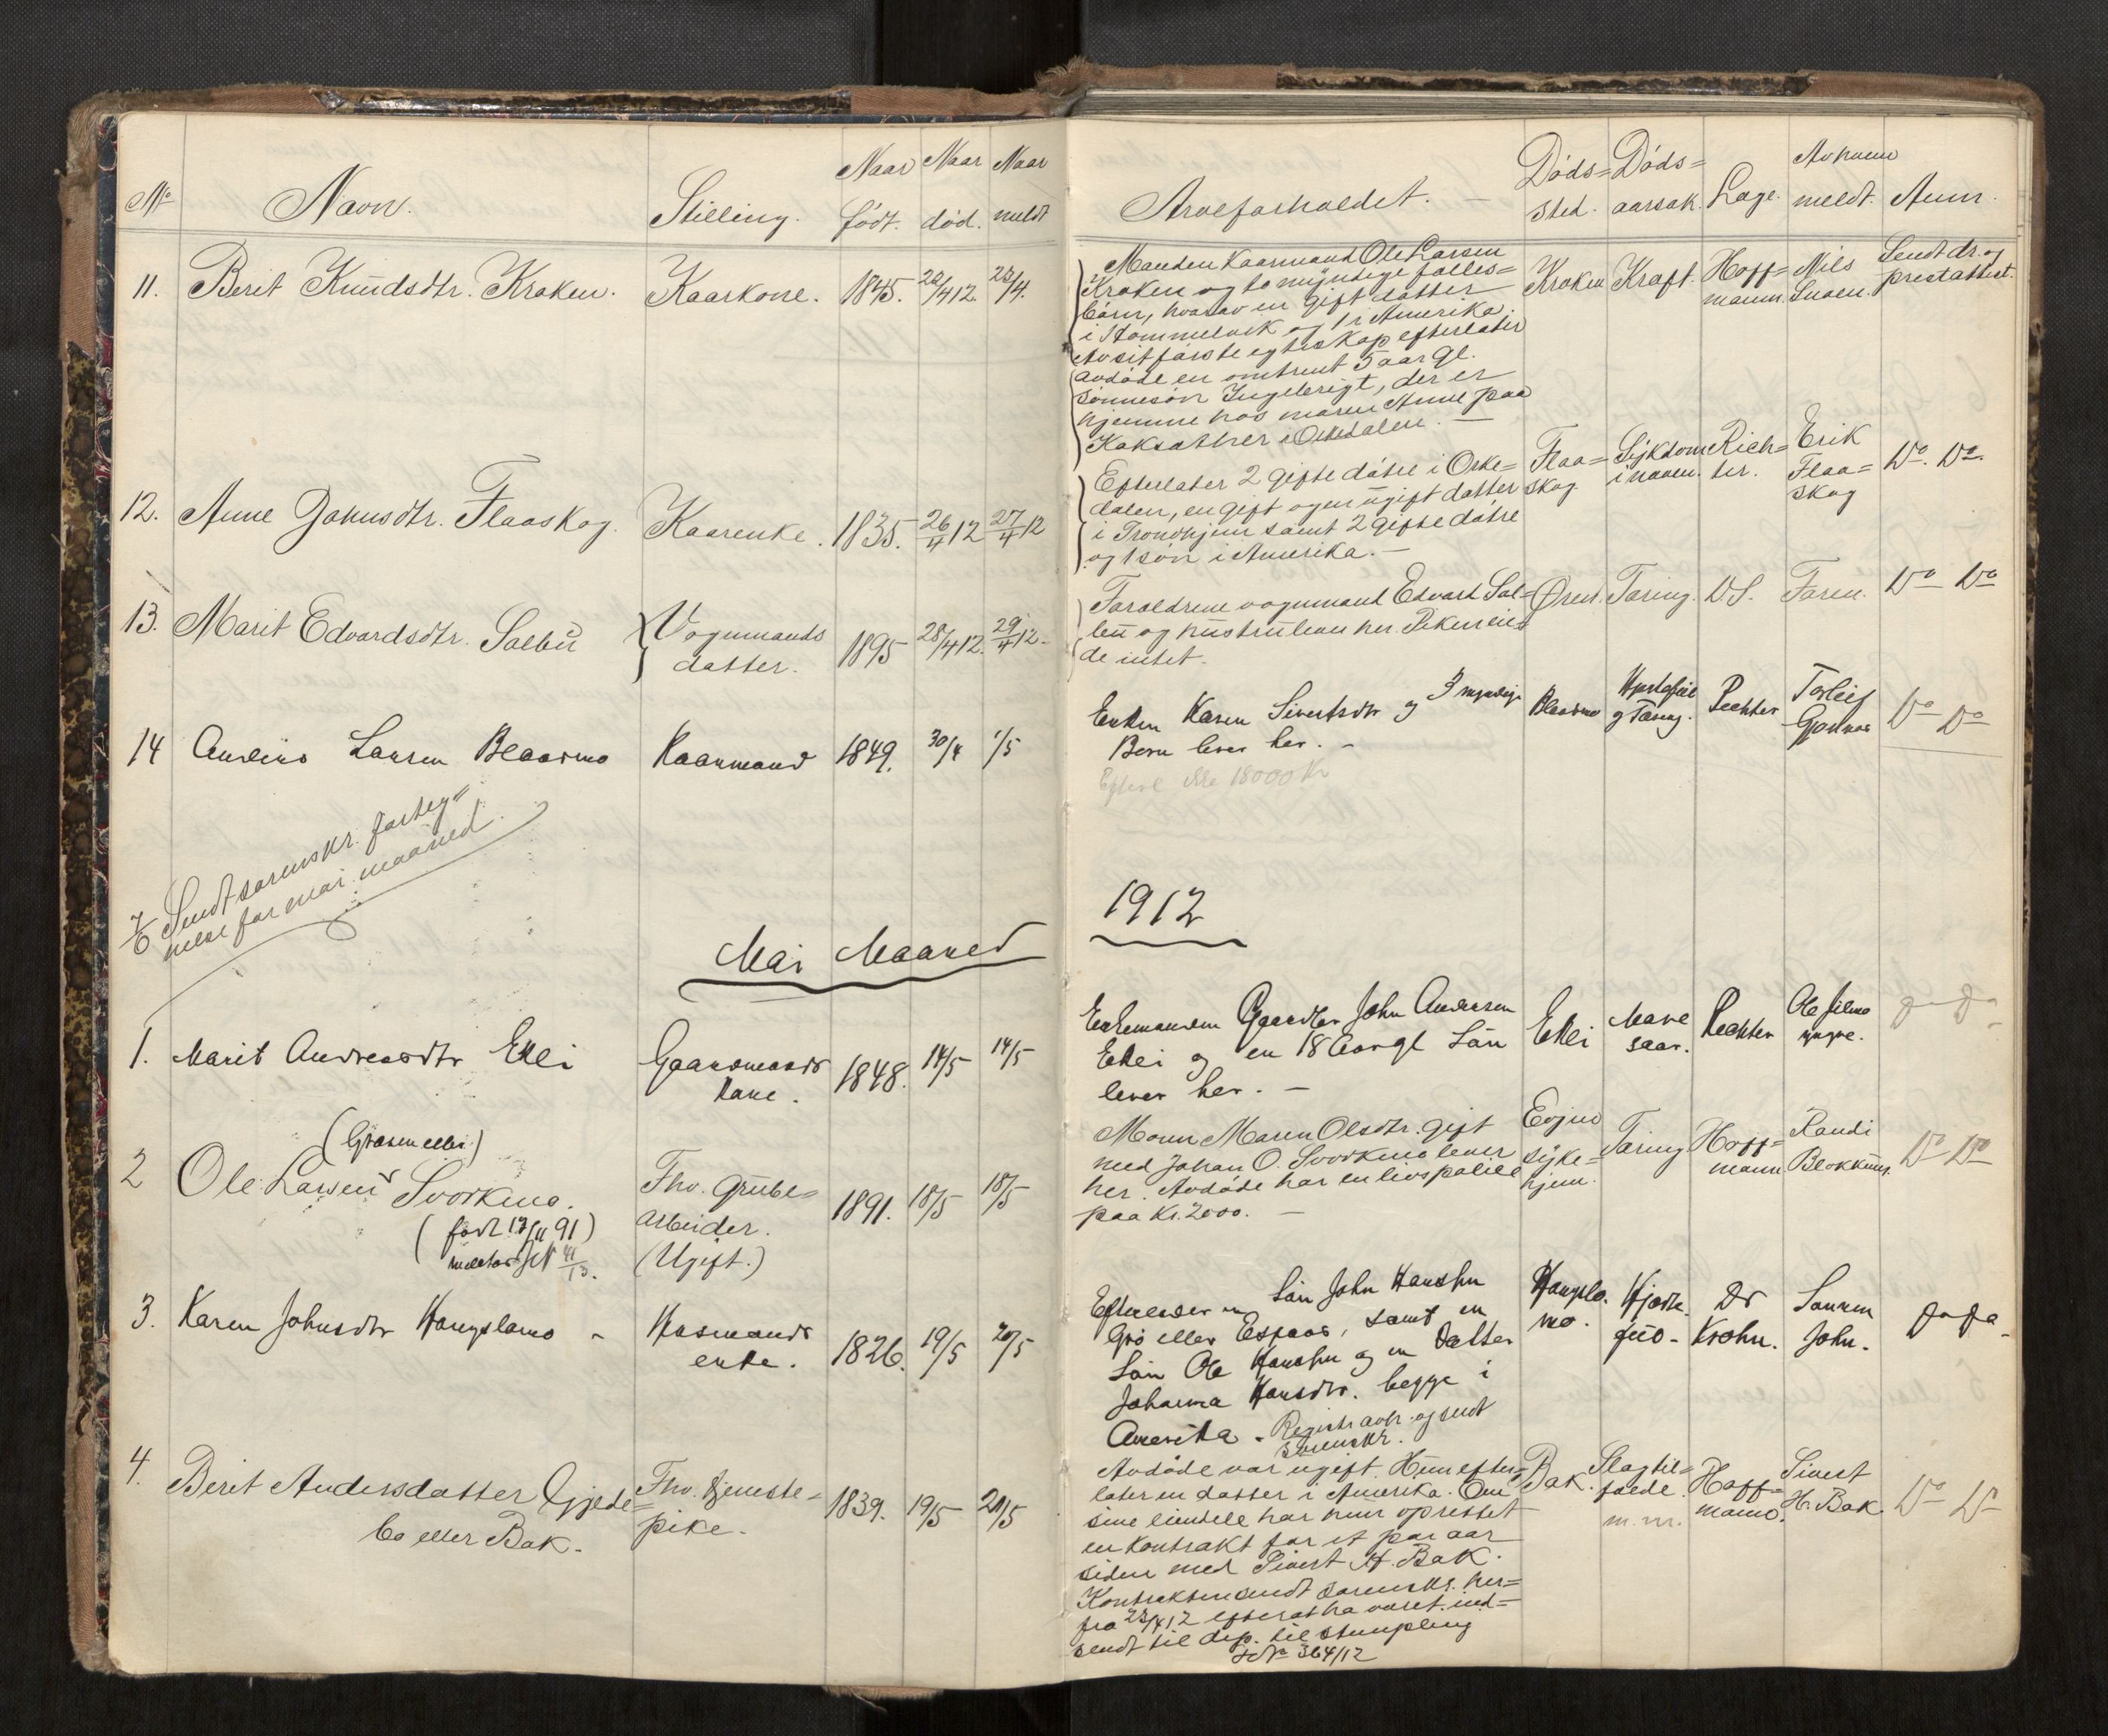 No
Navn.
Stilling.
Naar født.
Naar død.
Naar meldt
Arveforholdet. —
Døds= sted.
Døds= aarsak.
Læge.
Av hvem meldt.
Anm.
11. Berit Knudsdtr. Kroken. Kaarkone. 1845. 22/4 12. 23/4.
Manden Kaarmand Ole Larsen
Kroken og to myndige fælles=
børn, hvorav en gift datter
i Hommelvik og 1 i Amerika.
Av sit første egteskap efterlater
avdøde en omtrent 5 aar gl.
sønnesøn Ingebrigt, der er
hjemme hos moren Anne paa
Kaksæther i Orkedalen. —
Kroken Kræft. Hoff= mann. Nils Snoen. Sendt dr. og prestattest.
12. Anne Johnsdtr. Flaaskog. Kaarenke. 1835. 26/4 12 27/4 12
Efterlater 2 gifte døtre i Orke=
dalen, en gift og en ugift datter
i Trondhjem samt 2 gifte døtre
og 1 søn i Amerika. —
Flaa= skog. Sykdom i maven. Rich= ter. Erik Flaa= skog Do. Do.
13. Marit Edvardsdtr. Solbu Vognmands datter. 1895 28/4 12. 29/4 12-
Forældrene vognmand Edvard Sol=
bu og hustru lever her. Piken eie=
de intet.
Øren. Tæring. DS. Faren. Do Do
14 Anders Larsen Blaasmo Kaarmand 1849. 30/4 1/5
Enken Karen Sivertsdtr og 3 myndige
Børn lever her. —
Efterl 18000 Kr
Blaasmo Hjertefeil og Tæring. Rechter Torleif Do Do
7/6 Sendt sorenskr. forteg=
nelse for mai maaned.
Mai Maaned
1912
1. Marit Andreasdtr Ekli Gaardmands kone. 1848. 14/5 14/5
Enkemanden Gaardbr John Andersen
Ekli og en 18 Aar gl Søn
lever her. —
Ekli Mave saar. Rechter Ole yngre. Do Do
(Gråsem eller)
2 Ole Larsen Svorkmo. Fhv. Grube= arbeider. (Ugift.) 1891. 18/5 18/5
(født 13/11 91)
Moren Maren Olsdtr. gift
med Johan O. Svorkmo lever
her. Avdøde har en livspolice
paa Kr. 2000. —
Evjens syke= hjem. Tæring Hoff= mann Randi Blokkum. Do Do
3. Karen Johnsdtr Haugslamo - Husmands enke. 1826. 19/5 20/5
Efterlader en Søn John Hansen
Gro eller Espaas, samt en
Søn Ole Hansen og en Datter
Johanna Hansdtr. begge i
Amerika - Registr avh. og sendt
sorenskr.
Haugslo. mo. Dr Krohn. Sønnen John. Do Do
4. Berit Andersdatter Gjede=
bo eller Bak. Fhv. tjeneste= pike. 1839. 19/5 20/5
Avdøde var ugift. Hun efter=
later en datter i Amerika. Om
sine eiendele har hun oprettet
en kontrakt for et par aar
siden med Sivert H. Bak.
Kontrakten sendt sorenskr. her=
fra 23/4 12 efter at ha været ind=
sendt til dep. til stempling
JNo 364/12
Bak. Slagtil= fælde m.m. Hoff= mann. Sivert H. Bak. Do Do